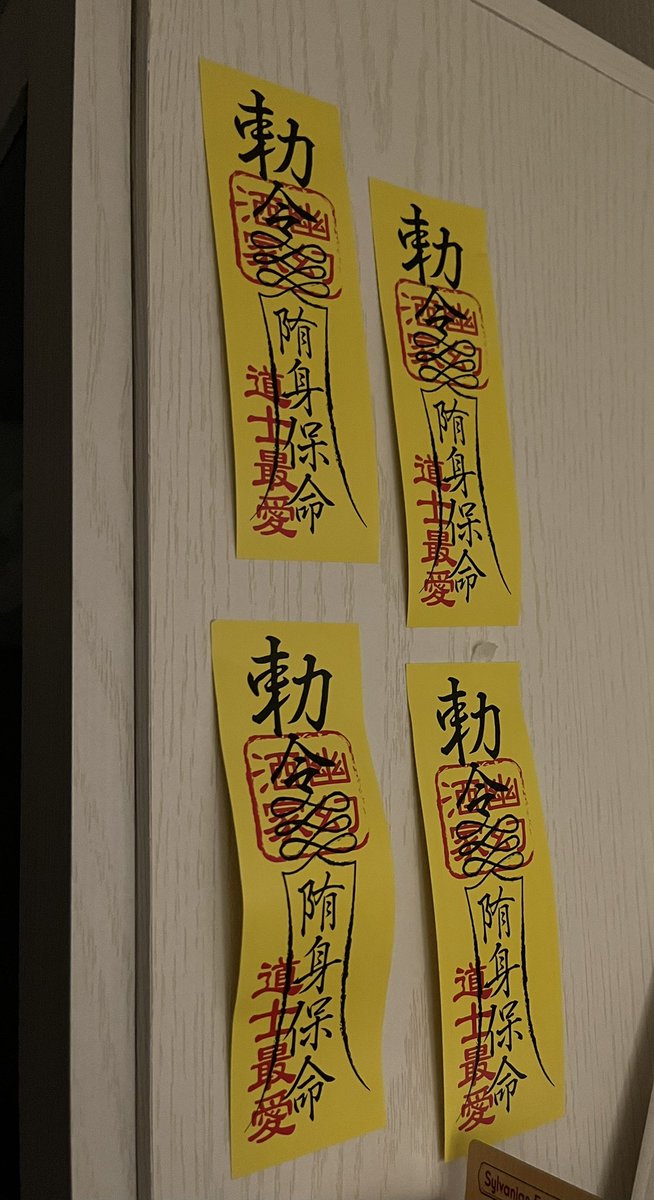 勅令
陏身保命
道士最愛
勅令
陏身保命
道士最愛
勅令
陏身保命
道士最愛
勅令
陏身保命
道士最愛
Sylvanian